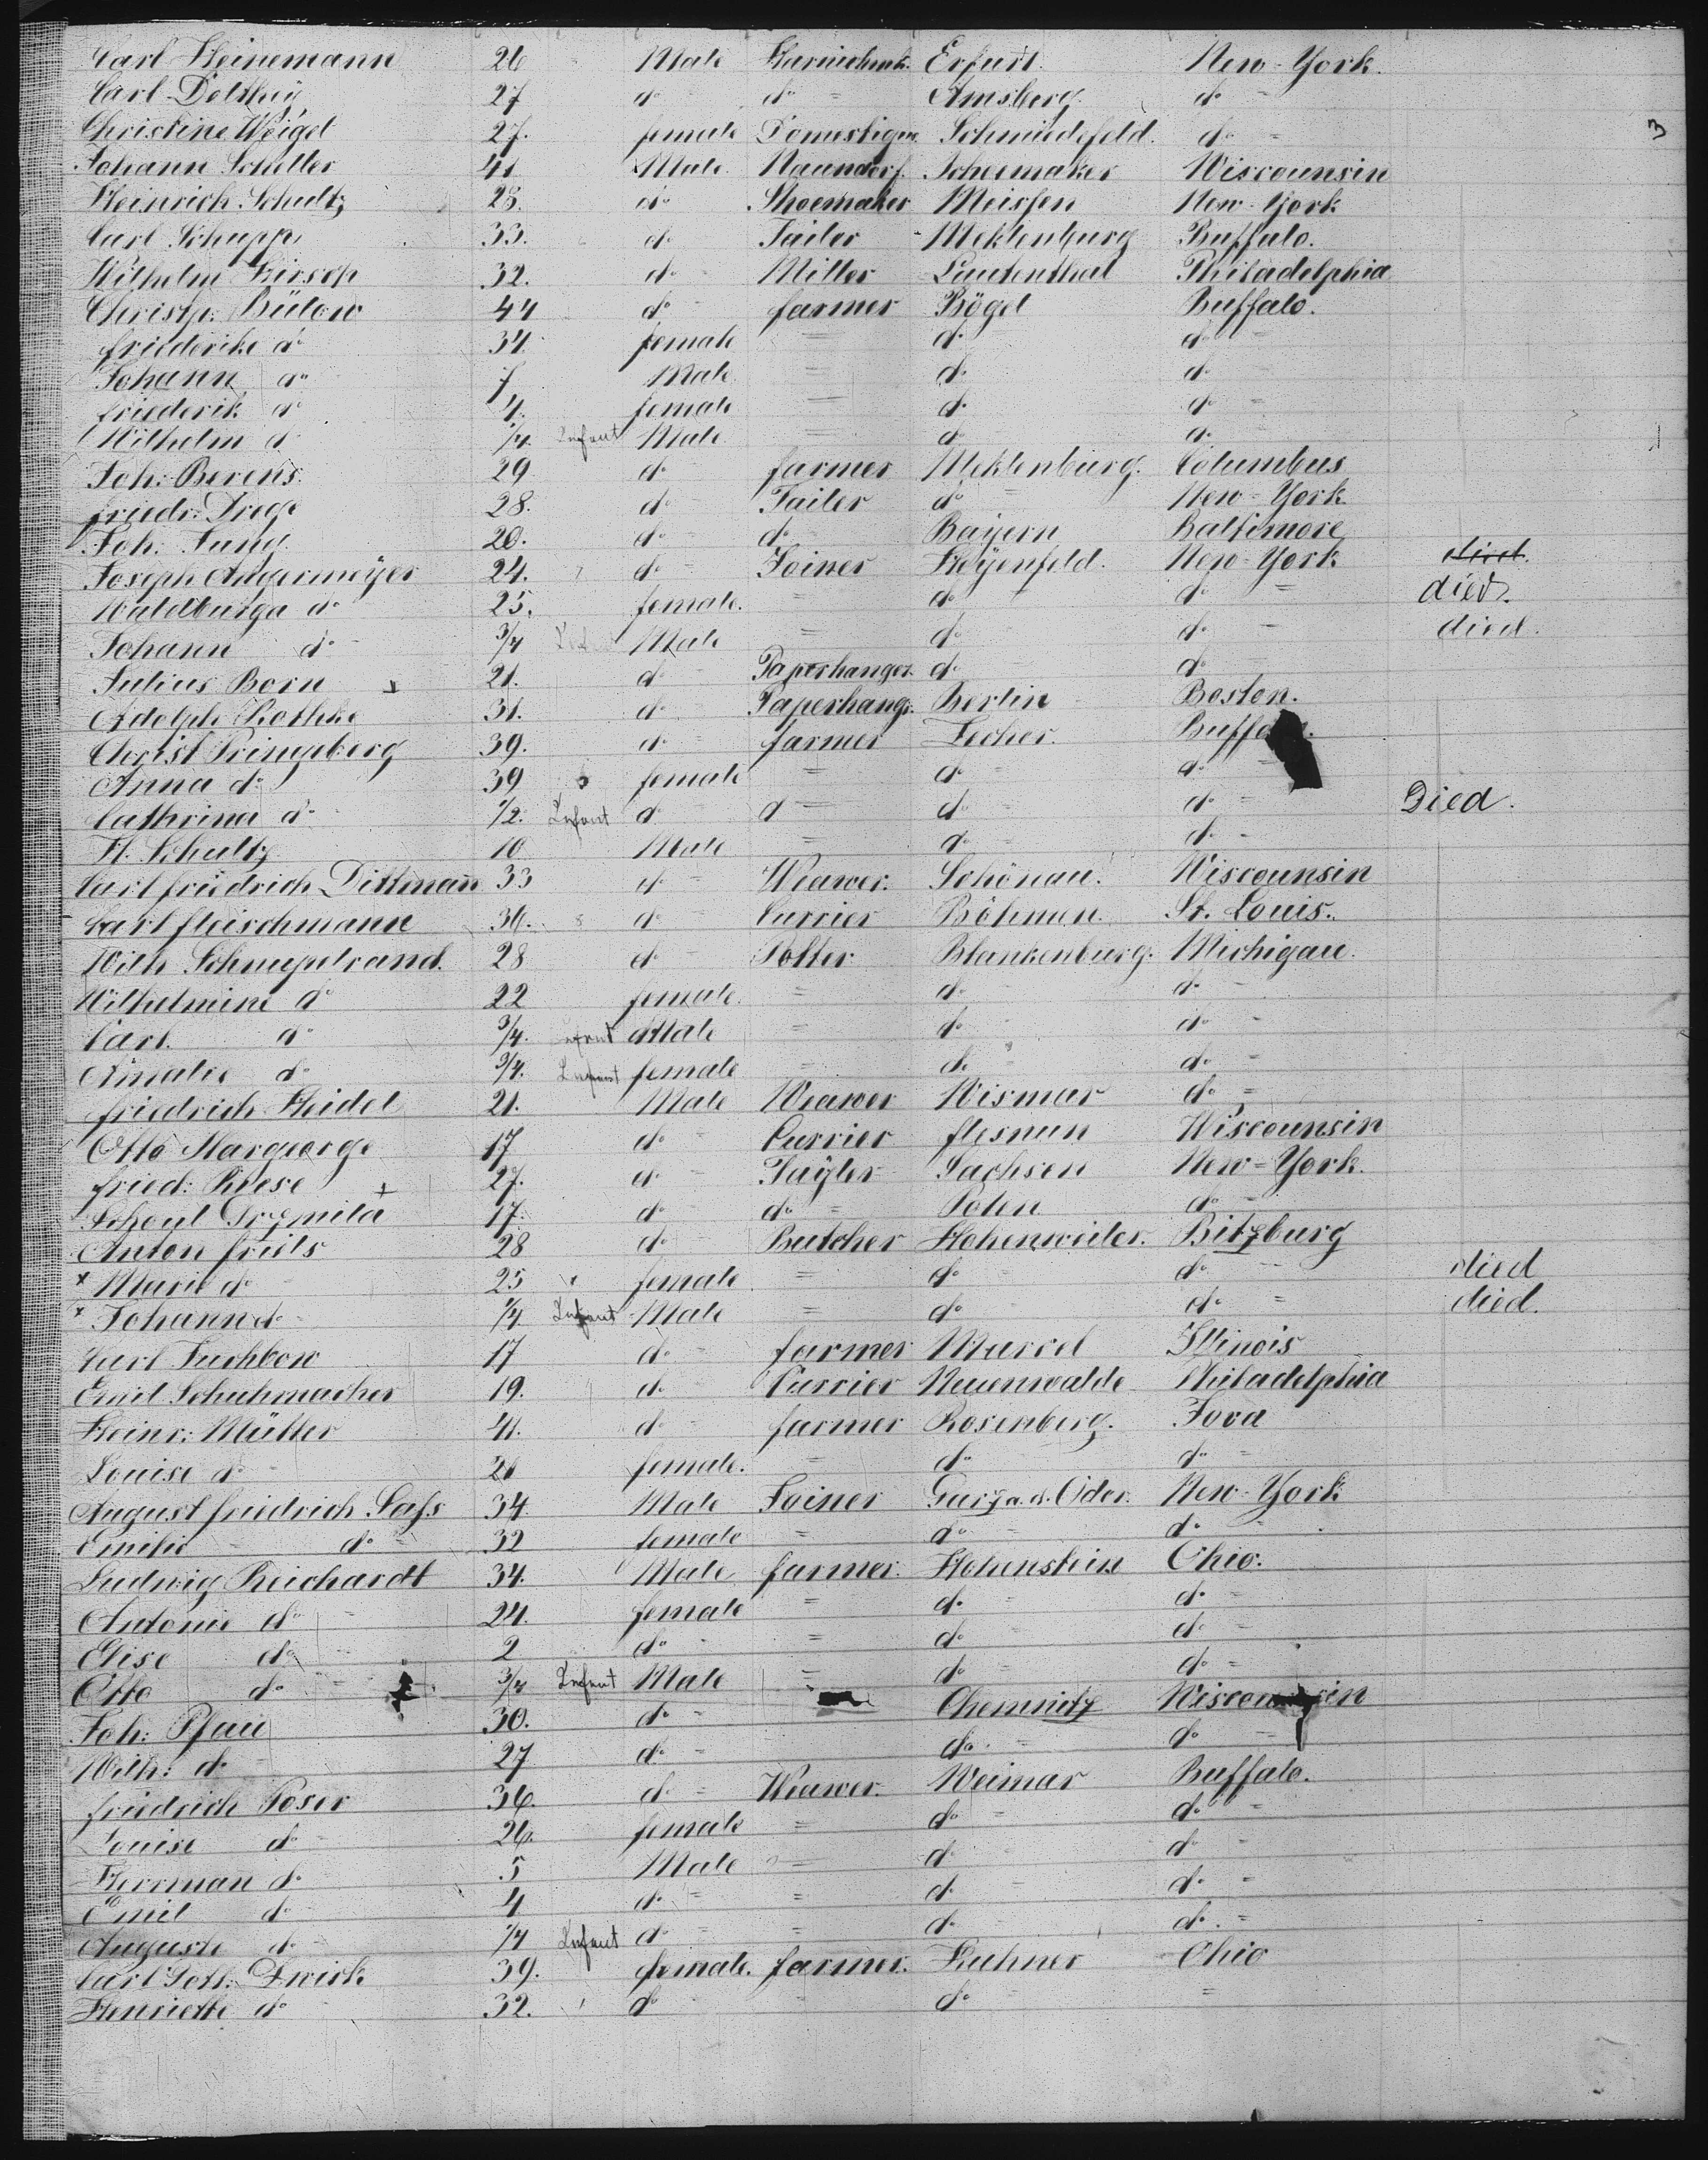 3
Carl Heinemann 26 Male Erfurt. New-York.
Carl 27 d° d° = Arnsberg d° =
Christine Weigel 27. female Domestique Schmiedefeld. d° =
Johann Scheller 41 Male Naundorf. Schoemaker Wiscounsin
Heinrich Schultz 28. d° Shoemaker Meissen New-York
Carl Schupp 33. d° Tailer Meklenburg Buffalo.
Wilhelm Hirsch 32. d° Miller Lautenthal Philadelphia
Christp: Bülow 44 d° farmer Bögel Buffalo.
friederike d° 34. female = d° d° =
Johann d° 7 Male = d° d°
friederik d° 4. female = d° d° =
Wilhelm d° Infant Male = d° d°
Joh: Berens. 29 d° farmer Meklenburg. Columbus
friedr: Drege 28. d° Tailer d° = New=York
Joh. Jung. 20. d° = d° Bayern Baltimore
Joseph Angermeÿer 24. d° = Joiner New-York died.
Waldburga d° 25. female. = d° d° = died.
Johann d° 3/4 Male = d° d° = died.
Julius Born x 21. d° Paperhanger. d° d°
Adolph Rothke 31. d° Paperhangr. Berlin Boston.
Christ Pringsberg 39. d° = farmer Zecher. Buffalo.
Anna d° 39 female = d° d° =
Cathrina d° 1/2. Infant d° d° = d° d° = Died.
H. Schultz 10 Male = d° d° =
Carl friedrich Dittmann 33 d° = Weawer. Schönau. Wiscounsin
Carl fleischmann 36. d° = Currier Böhmen. St. Louis.
Wilh 28 d° = Potter Blankenburg. Michigan.
Wilhelmine d° 22 female. = d° d° =
Carl d° 3/4. Male = d° d° =
Amalie d° 3/4. Infant female = d° d° =
friedrich Heidel 21. Male Weawer Wismar d° =
Otto Margeorge 17 d° = Currier Wiscounsin
fried: Reese 27. d° = Taÿler Sachsen New=York.
x 17. d° = d° = Polen d° =
Anton friels 28 d° Butcher Hohenweiler. Bitzburg
x Marie d° 25 female = d° d° = died
x Johann d° Infant Male = d° d° = died.
Carl 17 d° farmer Illinois
Emil Schuhmacher 19. d° Currier Neuenwalde Philadelphia
Heinr: Müller 41. d° = farmer Rosenberg. Iova
Louise d° 26 female. = d° d° =
August friedrich Lass 34. Male Joiner Garz a. d. Oder. New-York
Emilie d° = 32 female = d° = d° =
Ludwig Reichardt 34. Male farmer. Hohenstein Ohio.
Antonie d° = 24. female = d° = d° =
Elise d° = 2 d° = = d° d° =
Otto d° = 3/4 Infant Male = d° d° =
Joh: Pfau 30. d° = Chemnitz Wiscounsin
Wilh: d° 27 d° = d° = d° =
friedrich Poser 36. d° = Weawer. Weimar Buffalo.
Louise d° = 26. female = d° = d° =
Herrman d° 5 Male = d° d° =
Emil d° 4 d° = = d° = d° =
Auguste d° 1/4 Infant d° = = d° d° =
Carl Gotl. Zwirk 39. female. farmer. Ohio
Henriette d° 32. d° = d° =